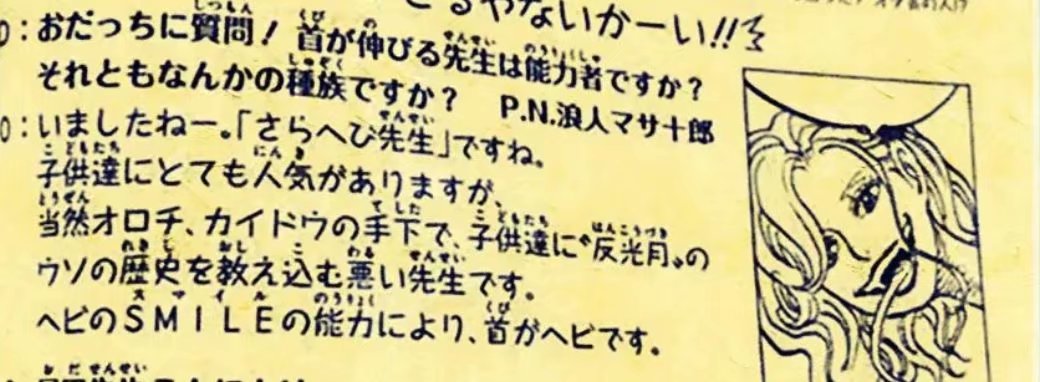 るやないかーい!!
D:おだっちに質問! 首が伸びる先生は能力者ですか?
それともなんかの種族ですか? P.N.浪人マサ十郎
O:いましたねー。「さらへび先生」ですね。
子供達にとても人気がありますが、
当然オロチ、カイドウの手下で、子供達に“反光月”の
ウソの歴史を教え込む悪い先生です。
ヘビのSMILEの能力により、首がヘビです。